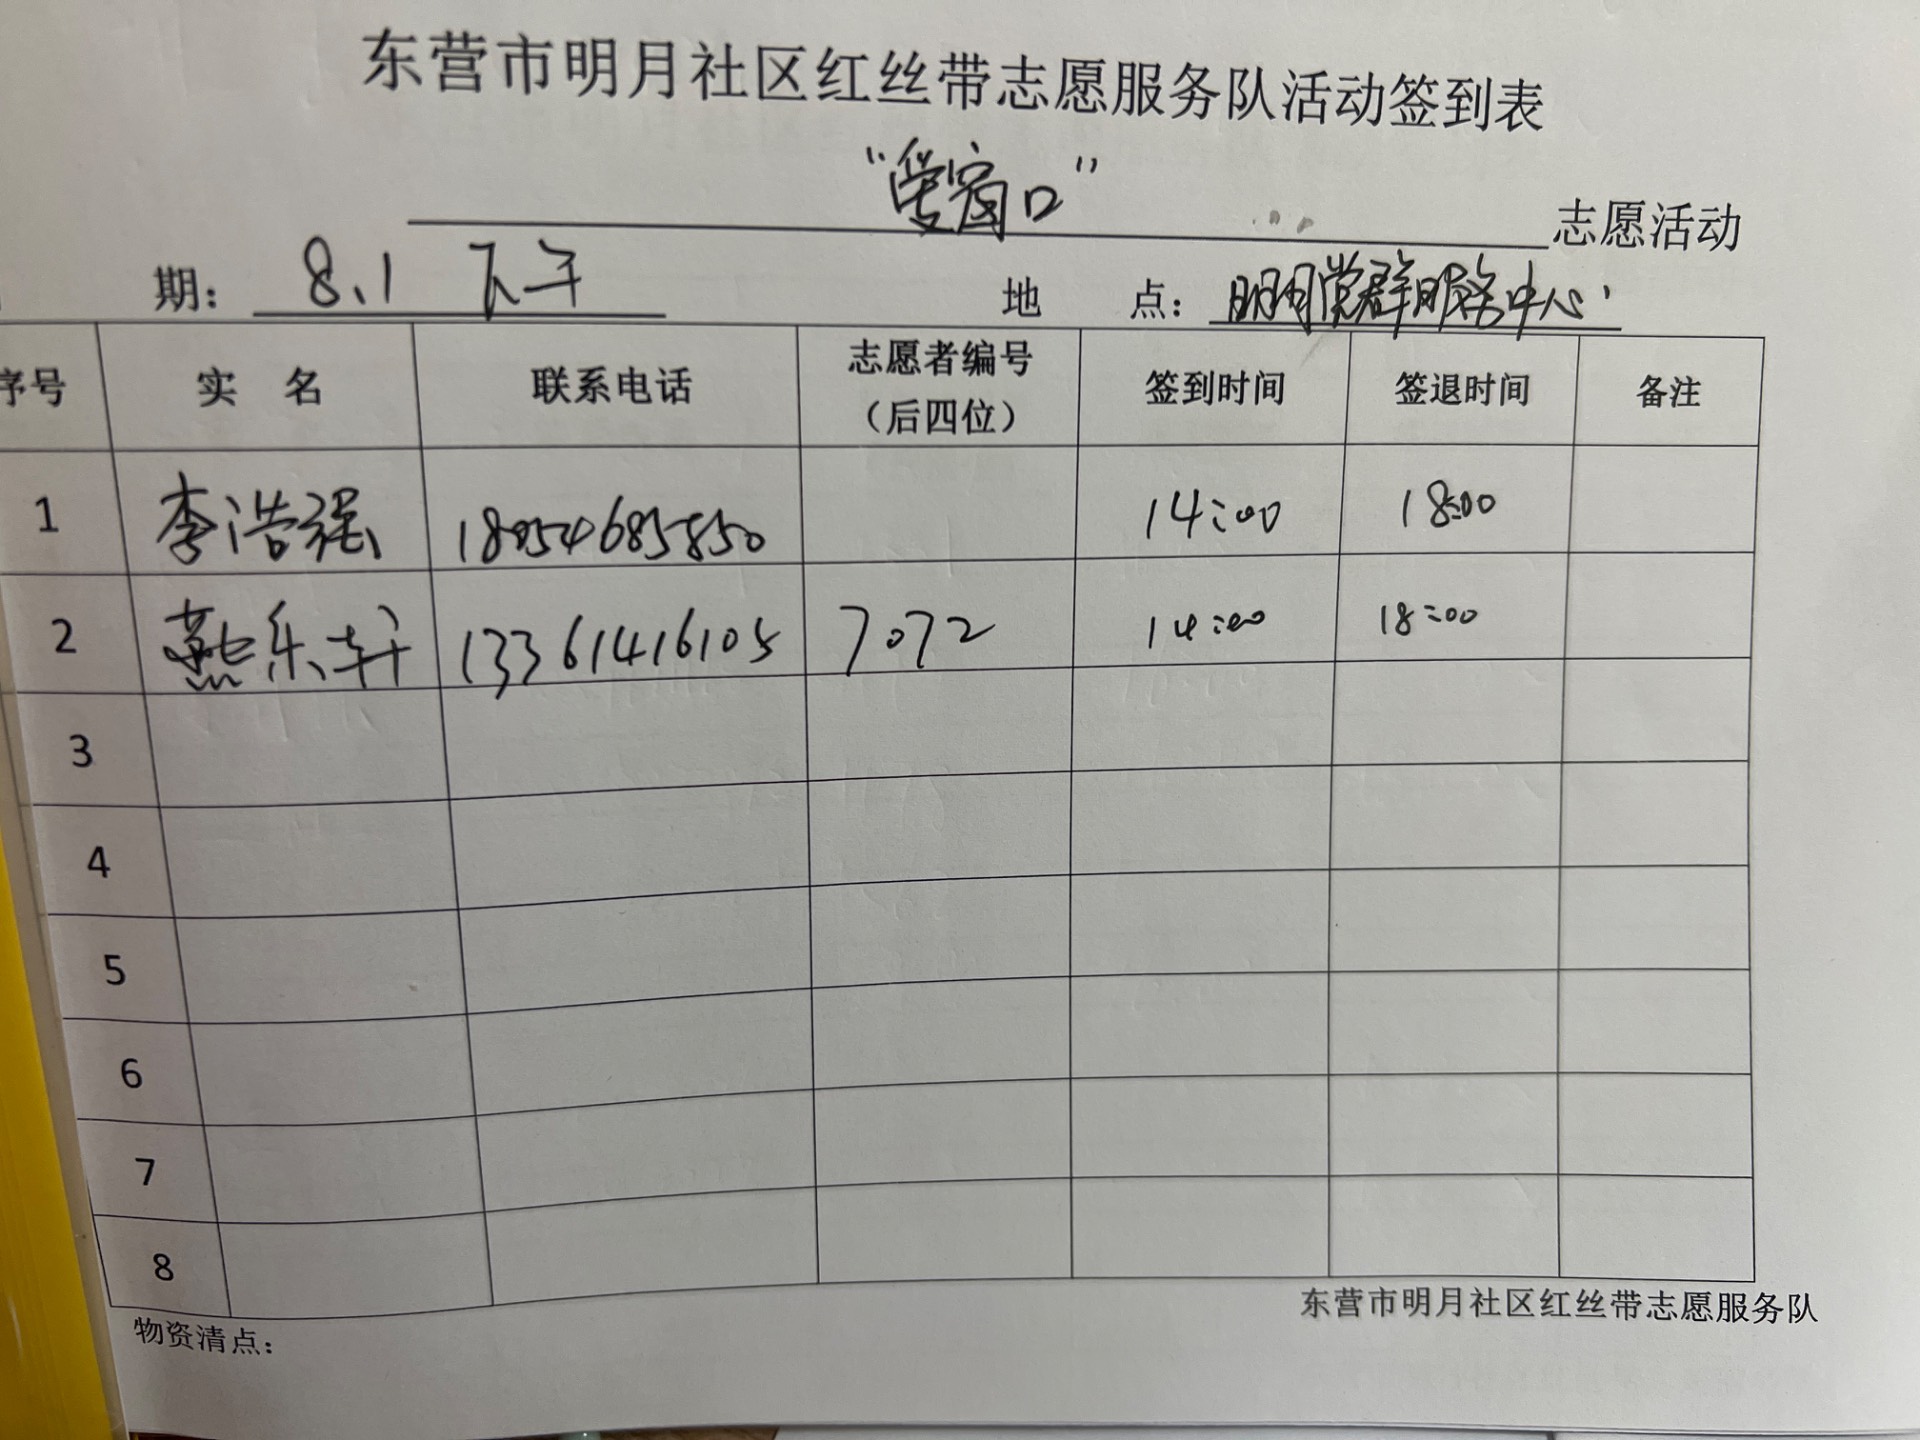 东营市明月社区红丝带志愿服务队活动签到表
“爱窗口” 志愿活动
期： 8.1 下午 地 点： 明月党群服务中心
序号 实 名 联系电话 志愿者编号（后四位） 签到时间 签退时间 备注
1 李浩强 18054685850 14:00 18:00
2 燕乐轩 13361416105 7072 14:00 18:00
3
4
5
6
7
8
东营市明月社区红丝带志愿服务队
物资清点：